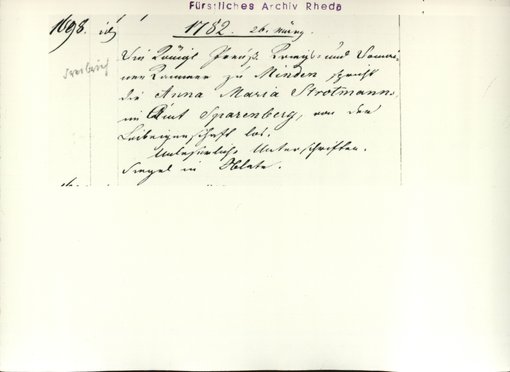 Fürstliches Archiv Rheda
1698. 1782. 26. März.
Die Königl Preuß. Kriegs- und Domai-
nen Kammer zu Minden spricht
die Anna Maria Strotmann
im Amt Sparenberg, von der
Leibeigenschaft los.
Unleserliche Unterschriften.
Siegel in Oblate.